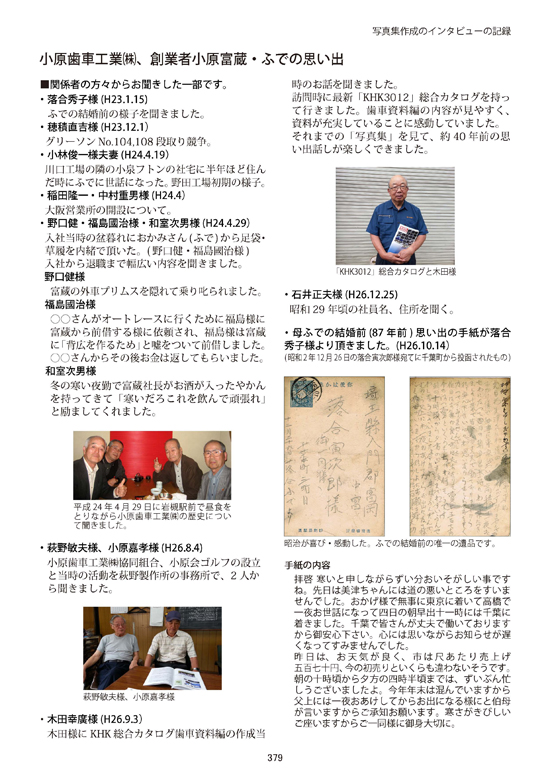 写真集作成のインタビューの記録
小原歯車工業㈱、創業者小原富蔵・ふでの思い出
■関係者の方々からお聞きした一部です。
・落合秀子様(H23.1.15)
ふでの結婚前の様子を聞きました。
・穂積直吉様(H23.12.1)
グリーソン No.104,108 段取り競争。
・小林俊一様夫妻(H24.4.19)
川口工場の隣の小泉フトンの社宅に半年ほど住ん
だ時にふでに世話になった。野田工場初期の様子。
・稲田隆一・中村重男様(H24.4)
大阪営業所の開設について。
・野口健・福島國治様・和室次男様(H24.4.29)
入社当時の盆暮れにおかみさん(ふで)から足袋・
草履を内緒で頂いた。(野口健・福島國治様)
入社から退職まで幅広い内容を聞きました。
野口健様
富蔵の外車プリムスを隠れて乗り叱られました。
福島國治様
〇〇さんがオートレースに行くために福島様に
富蔵から前借する様に依頼され、福島様は富蔵
に「背広を作るため」と嘘をついて前借しました。
〇〇さんからその後お金は返してもらいました。
和室次男様
冬の寒い夜勤で富蔵社長がお酒が入ったやかん
を持ってきて「寒いだろこれを飲んで頑張れ」
と励ましてくれました。
平成24年4月29日に岩槻駅前で昼食を
とりながら小原歯車工業㈱の歴史につい
て聞きました。
・萩野敏夫様、小原嘉孝様(H26.8.4)
小原歯車工業㈱協同組合、小原会ゴルフの設立
と当時の活動を萩野製作所の事務所で、2人か
ら聞きました。
萩野敏夫様、小原嘉孝様
・木田幸廣様(H26.9.3)
木田様に KHK 総合カタログ歯車資料編の作成当
時のお話を聞きました。
訪問時に最新「KHK3012」総合カタログを持っ
て行きました。歯車資料編の内容が見やすく、
資料が充実していることに感動していました。
それまでの「写真集」を見て、約40年前の思
い出話しが楽しくできました。
「KHK3012」総合カタログと木田様
・石井正夫様(H26.12.25)
昭和29年頃の社員名、住所を聞く。
・母ふでの結婚前(87年前)思い出の手紙が落合
秀子様より頂きました。(H26.10.14)
(昭和2年12月26日の落合寅次郎様宛てに千葉町から投函されたもの)
落合寅次郎様
昭治が喜び・感動した。ふでの結婚前の唯一の遺品です。
手紙の内容
拝啓 寒いと申しながらずい分おいそがしい事です
ね。先日は美津ちゃんには道の悪いところをすいま
せんでした。おかげ様で無事に東京に着いて高橋で
一夜お世話になって四日の朝早出十一時には千葉に
着きました。千葉で皆さんが丈夫で働いております
から御安心下さい。心には思いながらお知らせが遅
くなってすみませんでした。
昨日は、お天気が良く、市は尺あたり売上げ
五百七十円、今の初売りといくらも違わないそうです。
朝の十時頃から夕方の四時半頃までは、ずいぶん忙
しうございましたよ。今年年末は混んでいますから
父上には一夜おあけしてからお出になる様にと伯母
が言いますからご承知お願います。寒さがきびしい
ご座いますからご一同様に御身大切に。
379